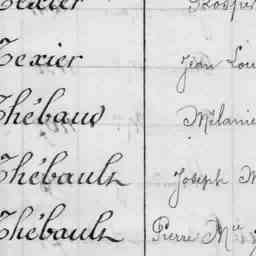 Texier Prosper
Texier Jean Lou
Thébaud Mélanie
Thébault Joseph M
Thébault Pierre Mie